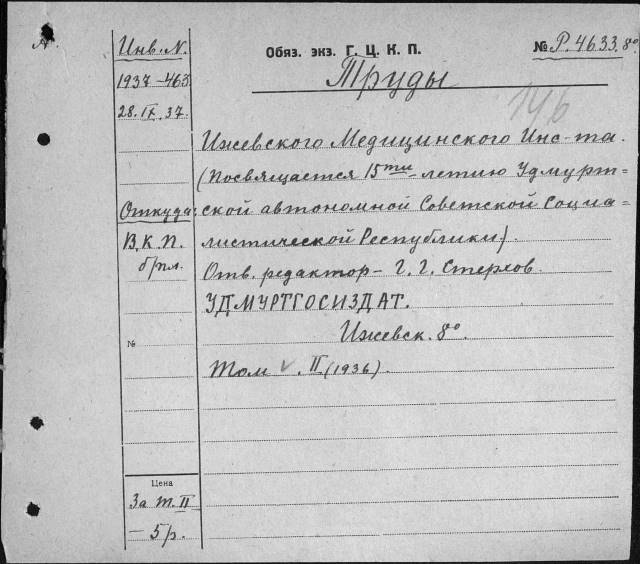 Инв. N.
Обяз. экз. Г. Ц. К. П.
№ Р. 4633. 8º
1937 - 463
Труды
28. IX. 37.
146
Ижевского Медицинского Инс-та.
(Посвящается 15ти-летию Удмурт=
Откуда:
ской автономной Советской Социа=
В. К. П.
листической Республики).
б/пл.
Отв. редактор - Г. Г. Стерхов.
УДМУРТГОСИЗДАТ.
№
Ижевск. 8º.
Том V. II (1936).
Цена
За т. II
- 5 р.